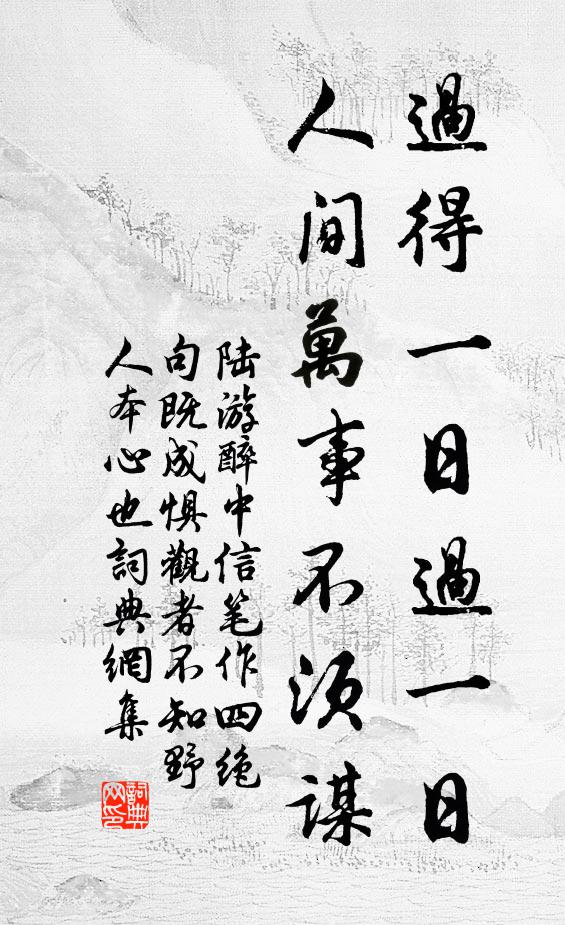 過得一日過一日
人间萬事不須謀
陆游醉中信笔作四绝
句既成惧觀者不知野
人本心也詞典網集
詞典
网印